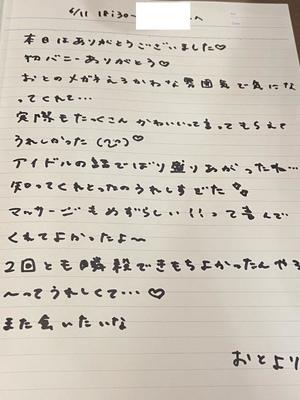 6/11 18:30〜 へ
本日はありがとうございました♡
初バニーありがとう♡
おとのメガネえろかわな雰囲気で気にな
ってくれて…
実際もたっくさんかわいいって言ってもらえて
うれしかった
アイドルの話でばり盛りあがったね…
知ってくれとったのうれしすぎた
マッサージもめずらしい!!って喜んで
くれてよかったよ〜
2回とも瞬殺できもちよかったんやろ
〜ってうれしくて…♡
また会いたいな
おとより